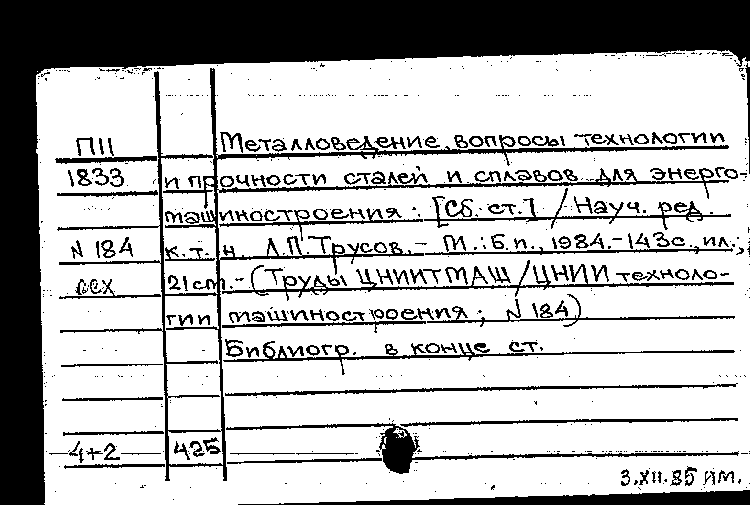 П11 Металловедение, вопросы технологии
1833 и прочности сталей и сплавов для энерго-
машиностроения : [Сб. ст.] / Науч. ред.
N 184 к. т. н. Л.П. Трусов. – М. : Б.и., 1984. – 143 с., ил.;
21 cm. – (Труды ЦНИИТМАШ / ЦНИИ техноло-
гии машиностроения ; N 184)
Библиогр. в конце ст.
4+2 425
3.XII.85